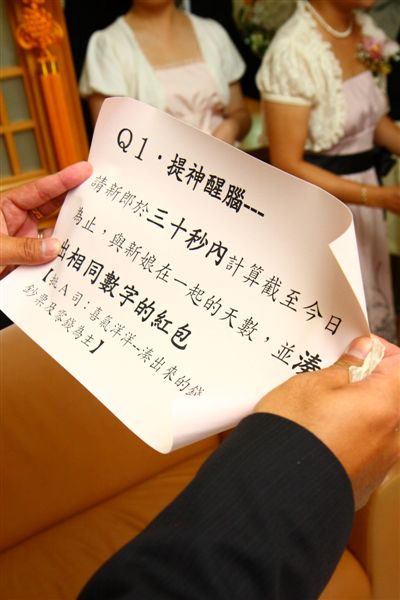 Q1．提神醒腦---
請新郎於三十秒內計算截至今日
為止，與新娘在一起的天數，並湊
出相同數字的紅包
【挑A司：喜氣洋洋--湊出來的錢
鈔票及零錢為主】